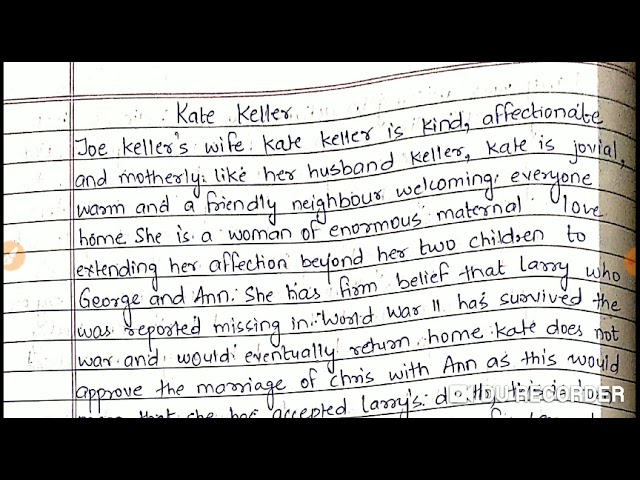 Kate Keller
Joe Keller's wife Kate Keller is kind, affectionate
and motherly. like her husband Keller, Kate is jovial,
warm and a friendly neighbour welcoming everyone
home. She is a woman of enormous maternal love
extending her affection beyond her two children to
George and Ann. She has firm belief that Larry who
was reported missing in World War II has survived the
war and would eventually return home. Kate does not
approve the marriage of Chris with Ann as this would
that she has accepted Larry's
DU RECORDER